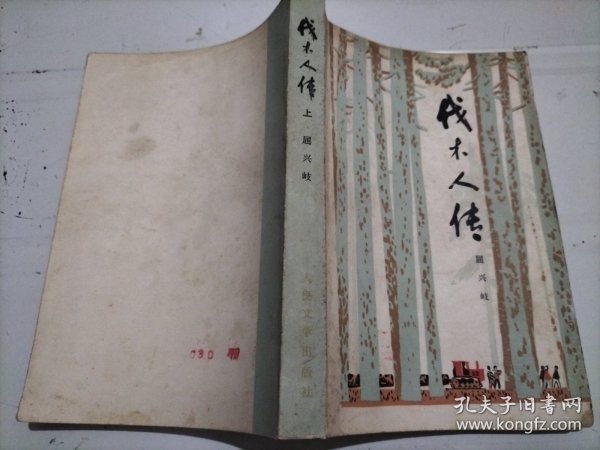 伐木人传
屈兴岐
伐木人传
上
屈兴岐
人民文学出版社
030
孔夫子旧书网
www.kongfz.com